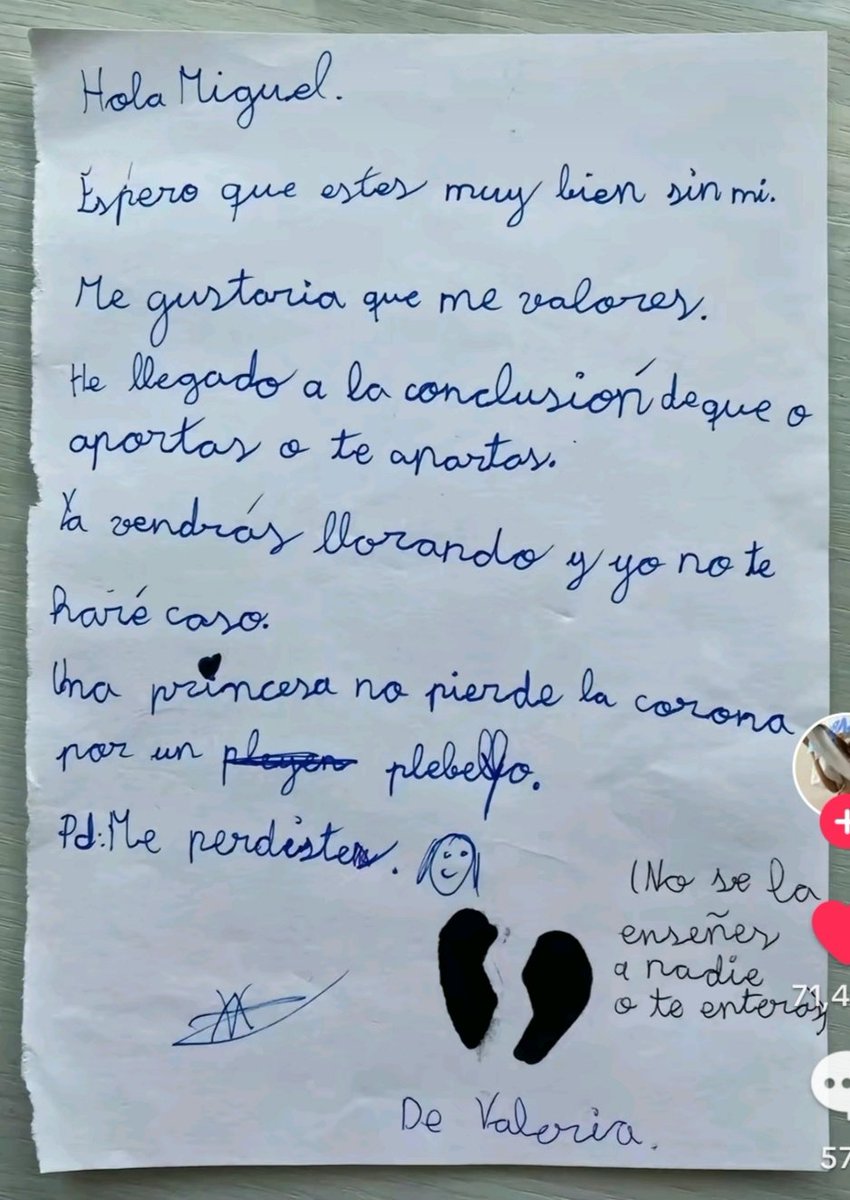 Hola Miguel.
Espero que estes muy bien sin mi.
Me gustaria que me valores.
He llegado a la conclusión de que o
aportas o te apartas.
Ya vendrás llorando y yo no te
haré caso.
Una princesa no pierde la corona
por un plebello.
Pd: Me perdistes.
(No se la
enseñes
a nadie
o te enterás)
71,4
57
De Valeria.